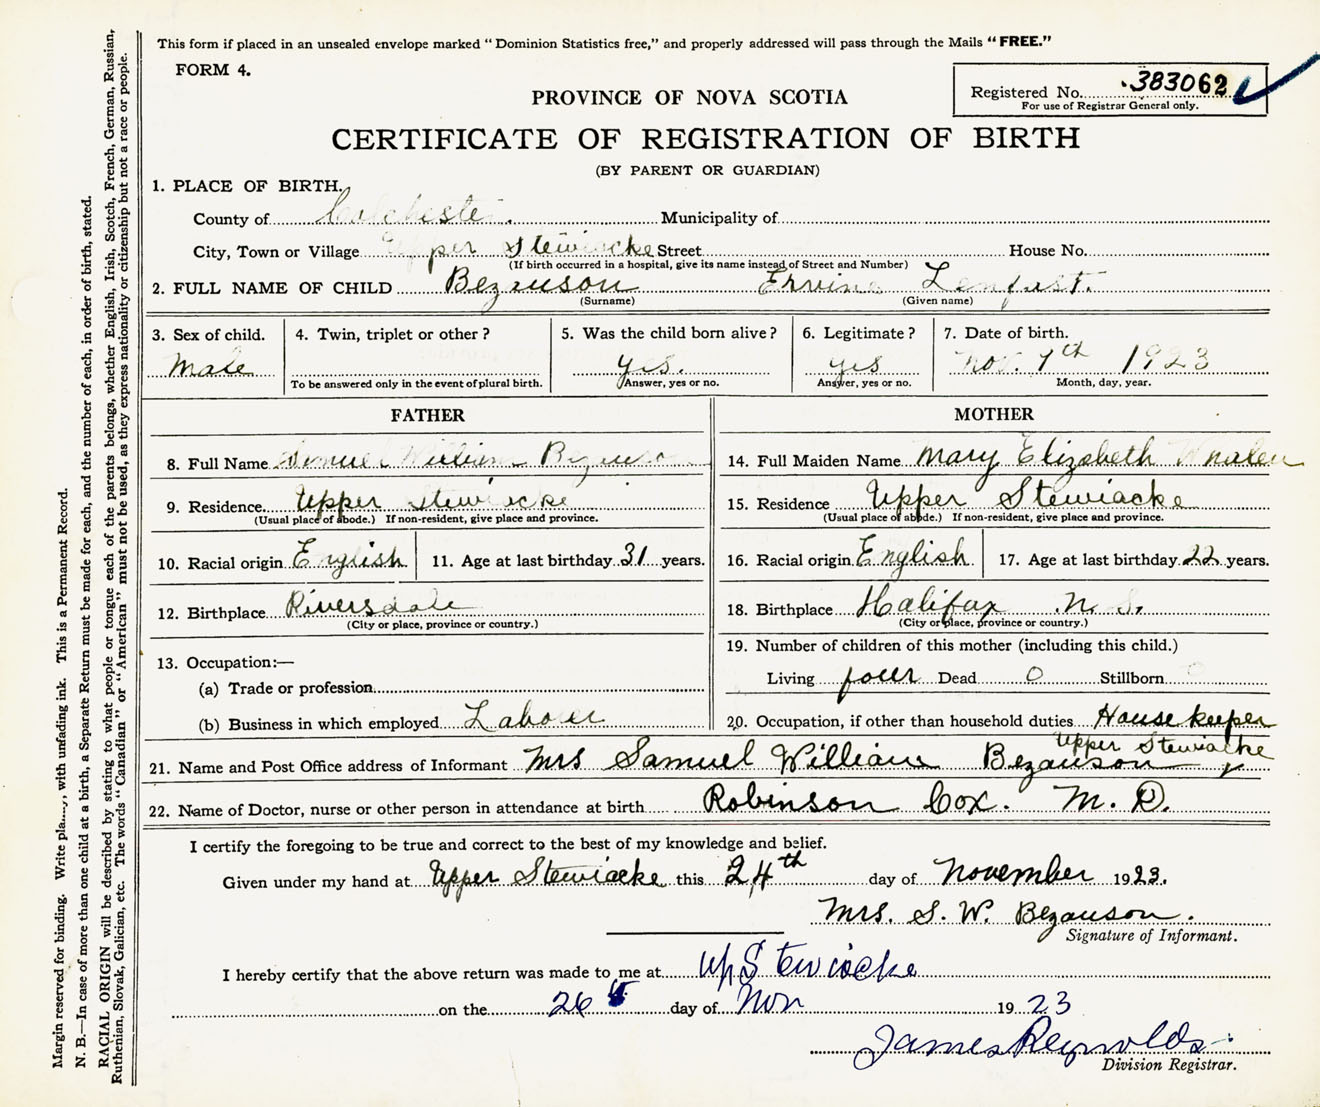 This form if placed in an unsealed envelope marked "Dominion Statistics free," and properly addressed will pass through the Mails "FREE."
FORM 4.
Registered No. 383062
For use of Registrar General only.
PROVINCE OF NOVA SCOTIA
CERTIFICATE OF REGISTRATION OF BIRTH
(BY PARENT OR GUARDIAN)
1. PLACE OF BIRTH.
County of Colchester. Municipality of
City, Town or Village Upper Stewiacke Street House No.
(If birth occurred in a hospital, give its name instead of Street and Number)
2. FULL NAME OF CHILD Bezanson Ervine Lenfest.
(Surname) (Given name)
3. Sex of child. 4. Twin, triplet or other? 5. Was the child born alive? 6. Legitimate? 7. Date of birth.
Male yes. yes Nov. 7th 1923
To be answered only in the event of plural birth. Answer, yes or no. Answer, yes or no. Month, day, year.
FATHER
8. Full Name Samuel William Bezanson
9. Residence. Upper Stewiacke
(Usual place of abode.) If non-resident, give place and province.
10. Racial origin English 11. Age at last birthday 31 years.
12. Birthplace Riversdale
(City or place, province or country.)
13. Occupation:—
(a) Trade or profession
(b) Business in which employed Labouer
MOTHER
14. Full Maiden Name Mary Elizabeth Whalen
15. Residence Upper Stewiacke
(Usual place of abode.) If non-resident, give place and province.
16. Racial origin English 17. Age at last birthday 22 years.
18. Birthplace Halifax N. S.
(City or place, province or country.)
19. Number of children of this mother (including this child.)
Living four Dead 0 Stillborn 0
20. Occupation, if other than household duties House keeper
Upper Stewiacke
21. Name and Post Office address of Informant Mrs Samuel William Bezanson
22. Name of Doctor, nurse or other person in attendance at birth Robinson Cox. M. D.
I certify the foregoing to be true and correct to the best of my knowledge and belief.
Given under my hand at Upper Stewiacke this 24th day of November 1923.
Mrs. S. W. Bezanson.
Signature of Informant.
I hereby certify that the above return was made to me at Up Stewiacke
on the 26 day of Nov 1923
James Reynolds
Division Registrar.
Margin reserved for binding. Write pla....., with unfading ink. This is a Permanent Record.
N. B.—In case of more than one child at a birth, a Separate Return must be made for each, and the number of each, in order of birth, stated.
RACIAL ORIGIN will be described by stating to what people or tongue each of the parents belongs, whether English, Irish, Scotch, French, German, Russian,
Ruthenian, Slovak, Galician, etc. The words "Canadian" or "American" must not be used, as they express nationality or citizenship but not a race or people.